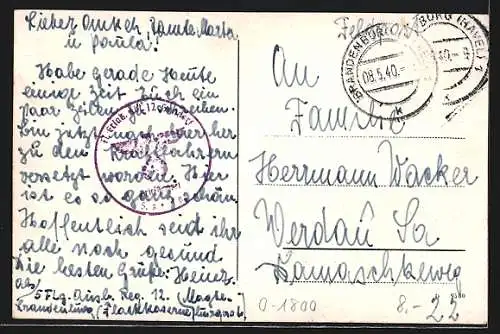 Lieber Onkel, Tante Marta
u Paula!
Habe gerade Heute
einige Zeit Euch ein
paar Zeilen zu schreiben.
Bin jetzt nach hier her
zu den Kraftfahrern
versetzt worden. Hier
ist es so ganz schön.
Hoffentlich seid ihr
alle noch gesund
Die besten Grüße: Heinz.
5 Flg. Ausb. Reg. 12.
Brandenburg
Feldpost
BRANDENBURG (HAVEL) 1
08.5.40.
BURG (HAVEL) 1
40.
An
Familie
Herrmann Wacker
Werdau Sa
Kamaschkeweg
0-1800
8.-22